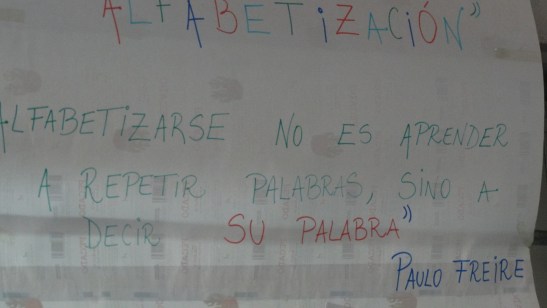 ALFABETIZACIÓN”
ALFABETIZARSE NO ES APRENDER
A REPETIR PALABRAS, SINO A
DECIR SU PALABRA”
PAULO FREIRE